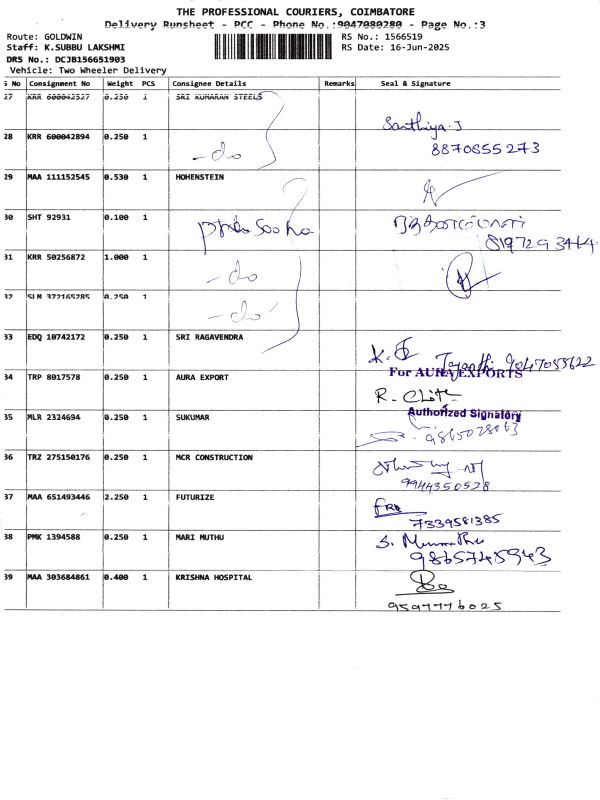 THE PROFESSIONAL COURIERS, COIMBATORE
Delivery Runsheet - PCC - Phone No.:9047080280 - Page No.:3
Route: GOLDWIN
RS No.: 1566519
Staff: K.SUBBU LAKSHMI
RS Date: 16-Jun-2025
DRS No.: DCJB156651903
Vehicle: Two Wheeler Delivery
S No Consignment No Weight PCS Consignee Details Remarks Seal & Signature
27 KRR 600042527 0.250 1 SRI KUMARAN STEELS
28 KRR 600042894 0.250 1 -do Santhiya.J
8870855273
29 MAA 111152545 0.530 1 HOHENSTEIN
30 SHT 92931 0.100 1
8197293444
31 KRR 50256872 1.000 1 -do
32 SLM 372165285 0.250 1 -do
33 EDQ 10742172 0.250 1 SRI RAGAVENDRA K. Jayanthi 9047055622
34 TRP 8017578 0.250 1 AURA EXPORT For AURA EXPORTS
R.
Authorized Signatory
35 MLR 2324694 0.250 1 SUKUMAR
36 TRZ 275150176 0.250 1 MCR CONSTRUCTION
9944350528
37 MAA 651493446 2.250 1 FUTURIZE
7339581385
38 PMK 1394588 0.250 1 MARI MUTHU S.
9865745943
39 MAA 303684861 0.400 1 KRISHNA HOSPITAL
9597776025